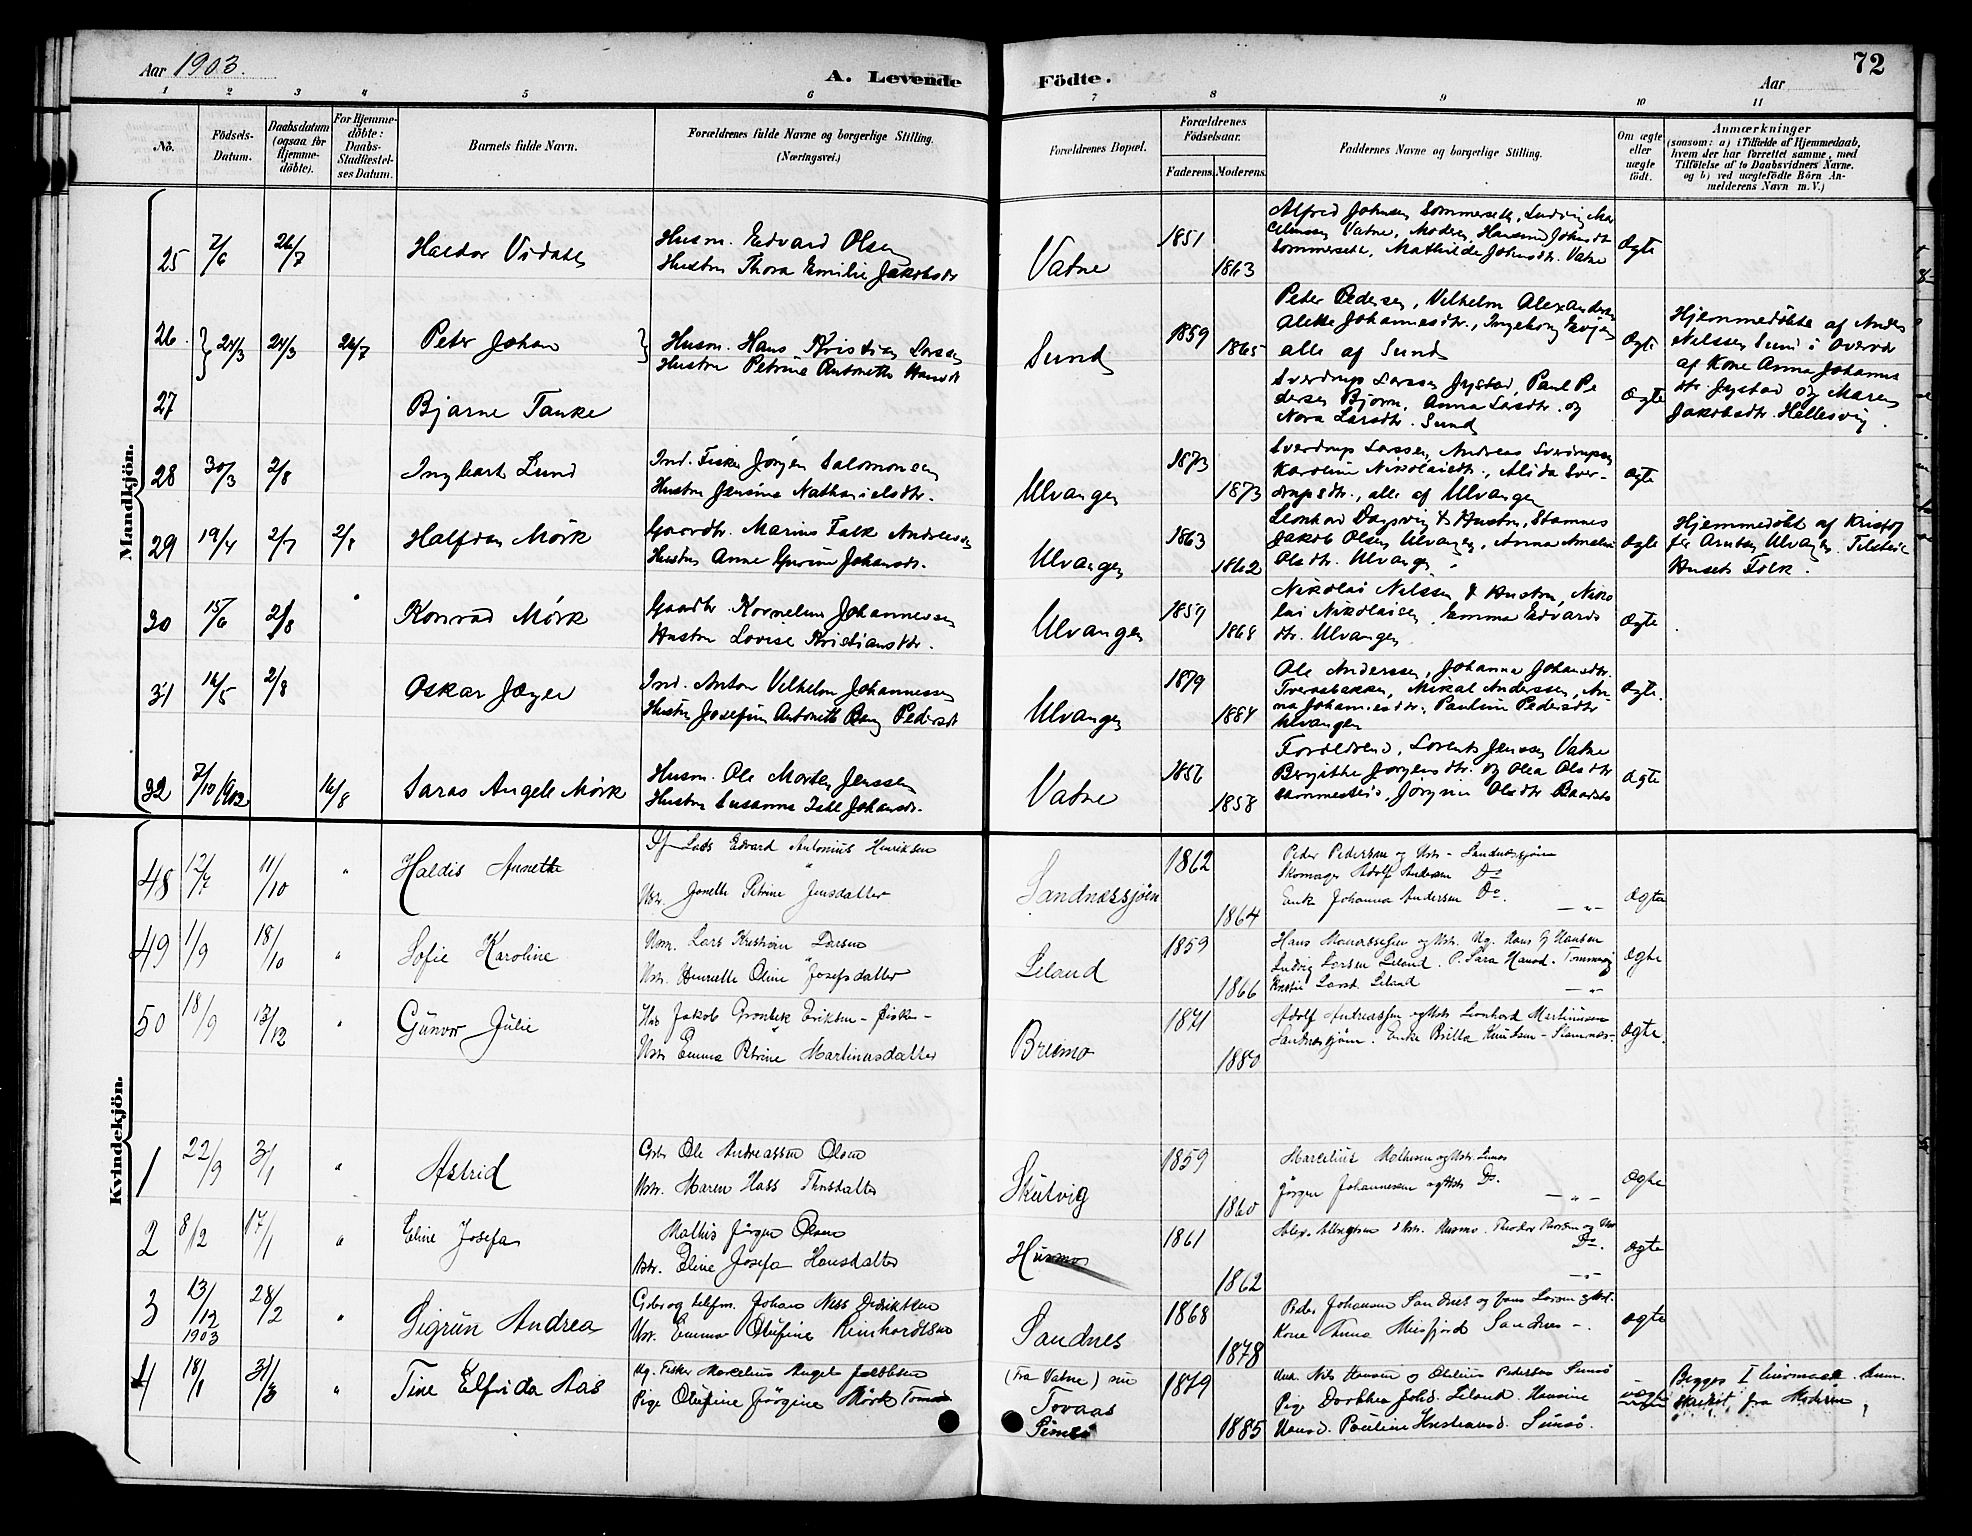 Aar 1903.
A. Levende Födte.
72
Aar
1 2 3 4 5 6 7 8 9 10 11
No.
Födsels-Datum.
Daabsdatum (ogsaa för Hjemme-döbte).
For Hjemme-döbte: Daabs-Stadfæstel-ses Datum.
Barnets fulde Navn.
Forældrenes fulde Navne og borgerlige Stilling. (Næringsvei.)
Forældrenes Bopæl.
Forældrenes Födselsaar.
Faderens. Moderens.
Faddernes Navne og borgerlige Stilling.
Om ægte eller uægte født.
Anmærkninger
(saasom: a) i Tilfælde af Hjemmedaab, hvem der har forrettet samme, med Tilföielse af to Daabsvidners Navne. og b) ved uægtefödte Börn An-melderens Navn m. V.)
Mandkjön.
25 7/6 26/7 Haldor Vidals
Husm. Edvard Olsen
Hustru Thora Emilie Jakobsdtr
Vatne 1851 1863
Alfred Johnsen Sommersete, Ludvig Mar
celiussen Vatne, Moderen, Hansine Johnsdtr
Sommersete, Mathilde Johnsdtr. Vatne
Ægte
26. 24/3 24/3 26/7 Peter Johan
Husm. Hans Kristian Larsen
Hustru Petrine Antonette Hansdtr
Sund 1859 1865
Peter Pedersen, Vilhelm Alexandersen
Alette Johannesdtr., Ingeborg Evjen
alle af Sund
Ægte
Hjemmedöbte af Anders
Nilssen Sund i Overvær
af Kone Anna Johannes
dtr. Jystad og Maren
Jakobsdtr. Hellesvig.
27 Bjarne Tanke
Sverdrup Larssen Jystad, Paul Pe
dersen Bjørn, Anna Larsdtr. og
Nora Larsdtr. Sund
Ægte
28 30/3 2/8 Ingbart Lund
Ind. Fisker Jørgen Salomonsen
Hustru Jensine Nathanielsdtr.
Ulvangen 1873 1873
Sverdrup Larssen, Andreas Sverdrupsen
Karoline Nikolaisdtr., Alida Sver-
drupsdtr., alle af Ulvangen
Ægte
29 19/4 2/7 2/8 Halfdan Mørk
Gaardbr. Marius Falk Andreassen
Hustru Anne Gurine Johansdtr.
Ulvangen 1863 1862
Leonhard Dagsvig & Hustru, Stamnes
Jakob Olsen Ulvangen, Anna Amalie
Olsdtr. Ulvangen
Ægte
Hjemmedöbt af Kristof
fer Arntsen Ulvangen. Tilstede
Husets Folk.
30 15/6 2/8 Konrad Mørk
Gaardbr. Kornelius Johannessen
Hustru Lovise Kristiansdtr.
Ulvangen 1859 1868
Nikolai Nilssen & Hustru, Niko
lai Nikolaisen, Emma Edvards
dtr. Ulvangen
Ægte
31 16/5 2/8 Oskar Jæger
Ind. Anton Vilhelm Johannessen
Hustru Josefine Antonette Berg Pedersdtr
Ulvangen 1879 1884
Ole Anderssen, Johanna Johansdtr.
Tveraabakken, Mikal Anderssen, An
na Johannesdtr., Pauline Pedersdtr
Ulvangen
Ægte.
32 7/10 1902 16/8 Saras Angele Mørk
Husm. Ole Morten Jenssen
Hustru Susanna Johansdtr.
Vatne 1856 1858
Forældrene, Lorents Jenssen Vatne
Bergitte Jørgensdtr. og Olea Olsdtr
sammesteds, Jørgine Olsdtr
Ægte
Kvindekjön.
48 12/7 11/10 " Haldis Annette
Lars Edvard Antonius Henriksen
Hstr. Jonette Petrine Jensdatter
Sandnessjøen 1862 1864
Peder Pedersen og Hstr - Sandnessjøen
Skomager Adolf Andersen Do
Enke Johanna Andersen Do.
Ægte
49 1/9 18/10 " Sofie Karoline
Hsm. Lars Kristian Larsen
Hstr. Henriette Oline Josefsdatter
Leland 1859 1866
Ludvig Larsen Leland. P. Sara Hansd.
Leland
Ægte
50 18/9 13/12 " Gunvor Julie
Jakob Grönbek Eriksen - Fisker -
Hstr Emma Petrine Martinusdatter
Breimo 1871 1880
Adolf Andreassen og Hstr Leonhard Martinussen
Sandnessjøen. Enke Britta Knudsen - Stamnes -
Ægte.
1 22/9 3/1 " Astrid
Gbr Ole Andreassen Olsen
Hstr. Maren Hass
Skutvig 1859 1860
Marcelius Mathisen og Hstr.
Jörgen Johannesen og Hstr Do.
Ægte
2 8/12 17/1 " Eline Josefa
Mathis Jörgen Olsen
Hstr. Eline Josefa Hansdatter
Husmo 1861 1862
Husmo. Theodor
Do.
Ægte
3 13/12 28/2 " Sigrun Andrea
1903
Gbr og telefm. Johan Ness Didriksen
Hstr. Emma Olufine Reinhardtsen
Sandnes 1868 1878
Peder Johansen Sandnes og Hans Larsen og Hstr.
Kone Anna Meisfjord Sandnes -.
Ægte
4 18/1 31/3 " Tine Elfrida Aas
Ug. Fisker Marcelius Angel Jakobsen
Pige Olufine Jörgine Mörk
(Fra Vatne) nu
Tovaas
1879 1885
Nils Hansen og Pedersen
Pige Dorthea Leland. Hansine
Hansd. Pauline Kristiansd.
uægte
Begges I Leiermaal.
skrevet fra Moderen